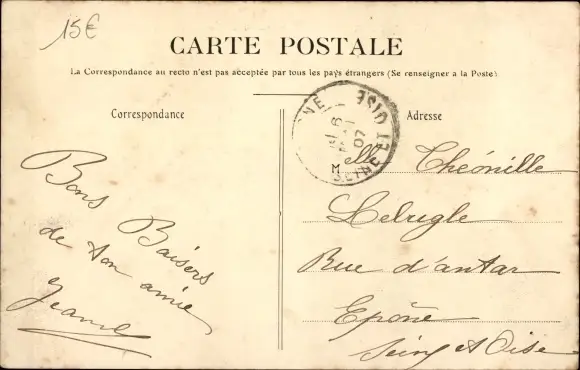 15€
CARTE POSTALE
La Correspondance au recto n'est pas acceptée par tous les pays étrangers (Se renseigner a la Poste)
Correspondance
Bons Baisers
de ton amie
Jeanne
Adresse
Melle Théonille
Lelugle
Rue d'antar
Epône
Seine et Oise
NE
16
07
SEINE ET OISE